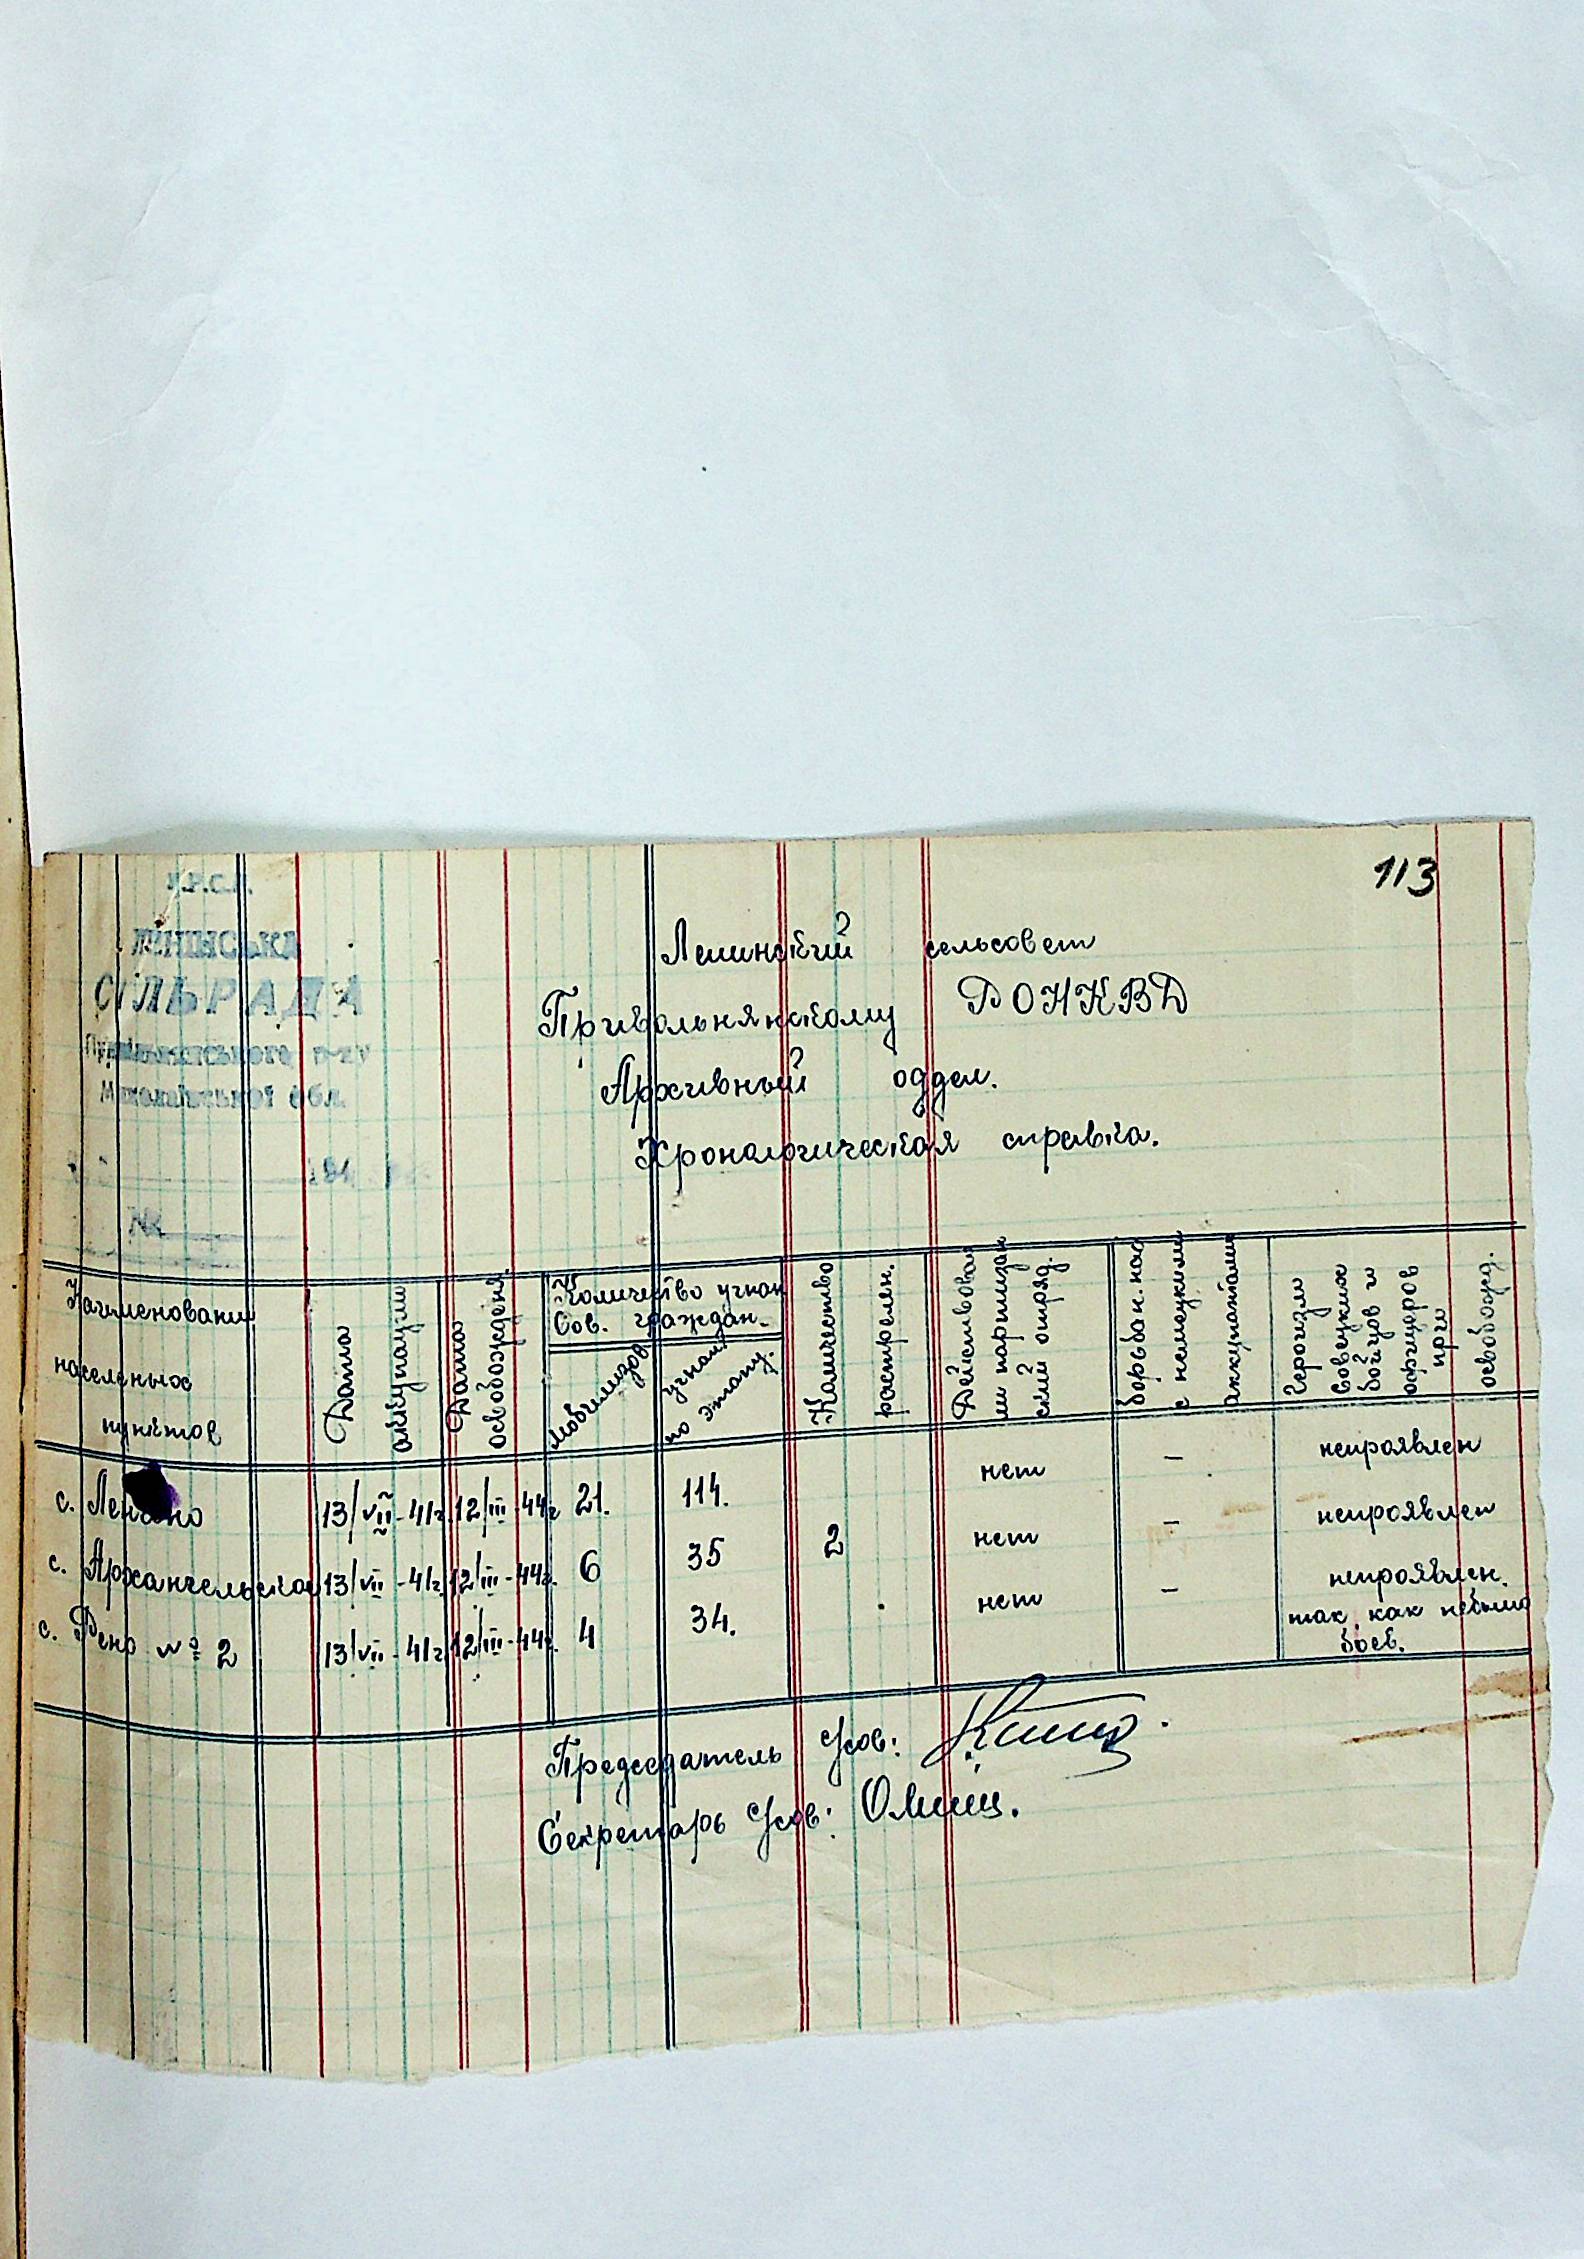 113
ЛЕНІНСЬКА
СІЛЬРАДА
р-ну
Миколаївської обл.
194
№
Ленинский сельсовет
Привольнянскому РОНКВД
Архивный оддел.
Хронологическая справка.
Наименовании населеных пунктов
Дата оккупации
Дата освобожденя.
Количество угнан Сов. граждан.
мобилизов
угнан по этапу.
Количество растрелен.
Действовал ли партизан ский отряд.
борьба н. нас с немецкими
Героизм советских бойцов и офицеров при освобожд.
с. Ленино 13/VII-41г. 12/III-44г 21. 114. нет – непроявлен
с. Архангельское 13/VII-41г. 12/III-44г. 6 35 2 нет – непроявлен
с. Рено № 2 13/VII-41г. 12/III-44г. 4 34. нет – непроявлен.
так как небыло
боев.
Председатель с/сов:
Секретарь с/сов: